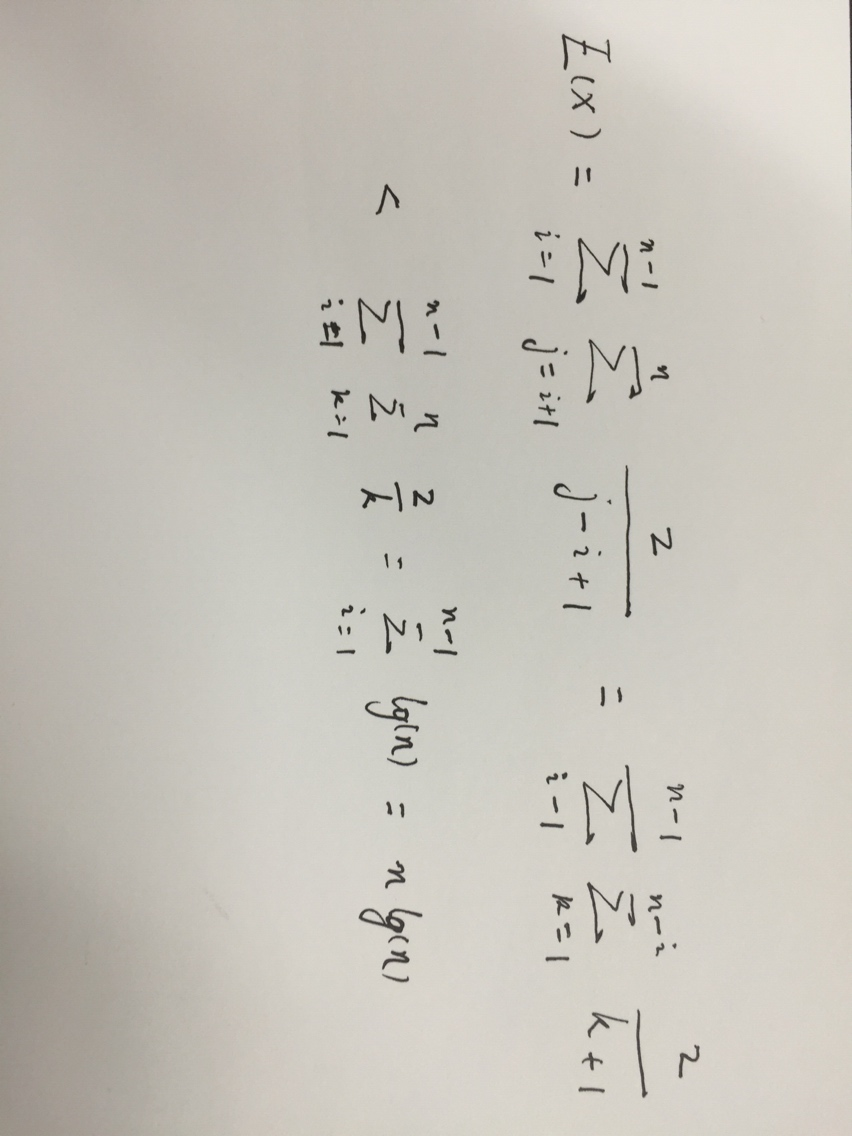 E(X) = \sum_{i=1}^{n-1} \sum_{j=i+1}^{n} \frac{2}{j-i+1} = \sum_{i-1}^{n-1} \sum_{k=1}^{n-i} \frac{2}{k+1}
< \sum_{i=1}^{n-1} \sum_{k=1}^{n} \frac{2}{k} = \sum_{i=1}^{n-1} lg(n) = n lg(n)